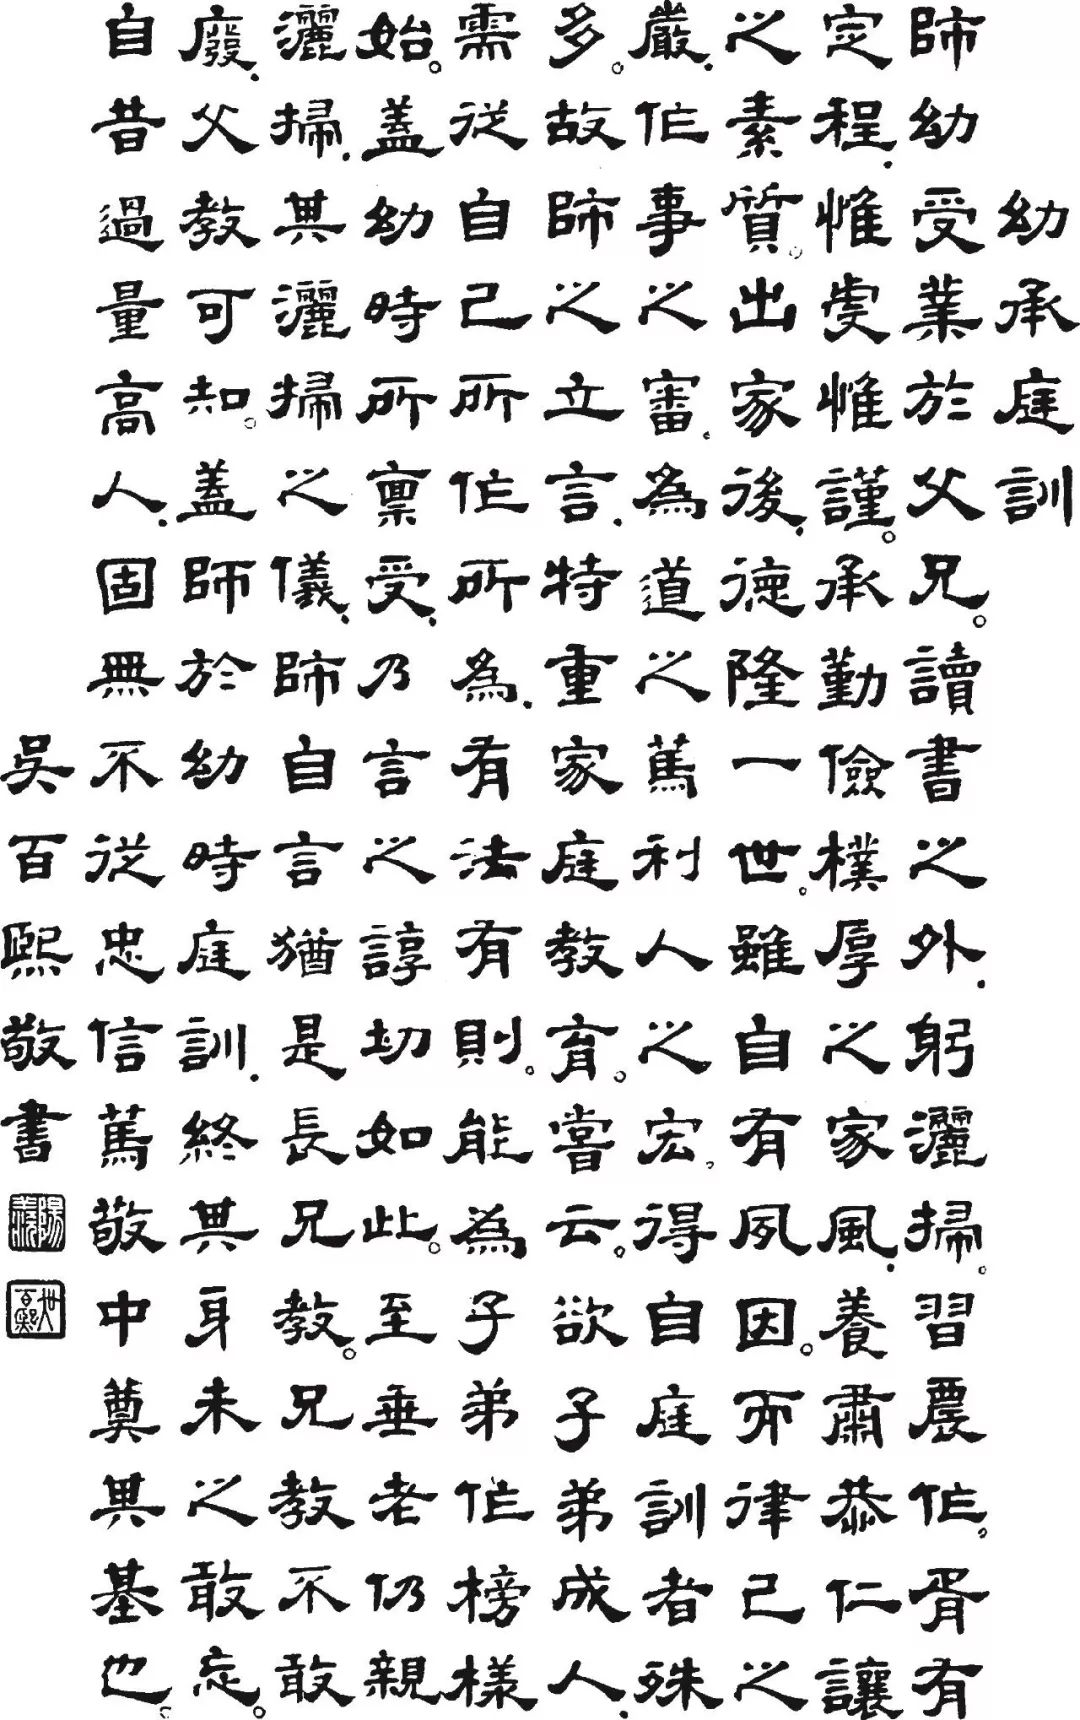 幼承庭訓
師幼受業於父兄。讀書之外，躬灑掃。習農作，胥有
定程，惟虔惟謹。承勤儉樸厚之家風，養肅恭仁讓
之素質。出家後，德隆一世。雖自有夙因。而律己之
嚴，作事之審，為道之篤利人之宏，得自庭訓者殊
多。故師之立言，特重家庭教育。嘗云。欲子弟成人，
需從自己所作所為，有法有則。能為子弟作榜樣
始。蓋幼時所稟受，乃言之諄切如此。至垂老仍親
灑掃，其灑掃之儀，師自言猶是長兄教。兄教不敢
廢，父教可知。蓋師於幼時庭訓，終其身未之敢忘。
自昔過量高人，固無不從忠信篤敬中奠其基也。
吳百熙敬書